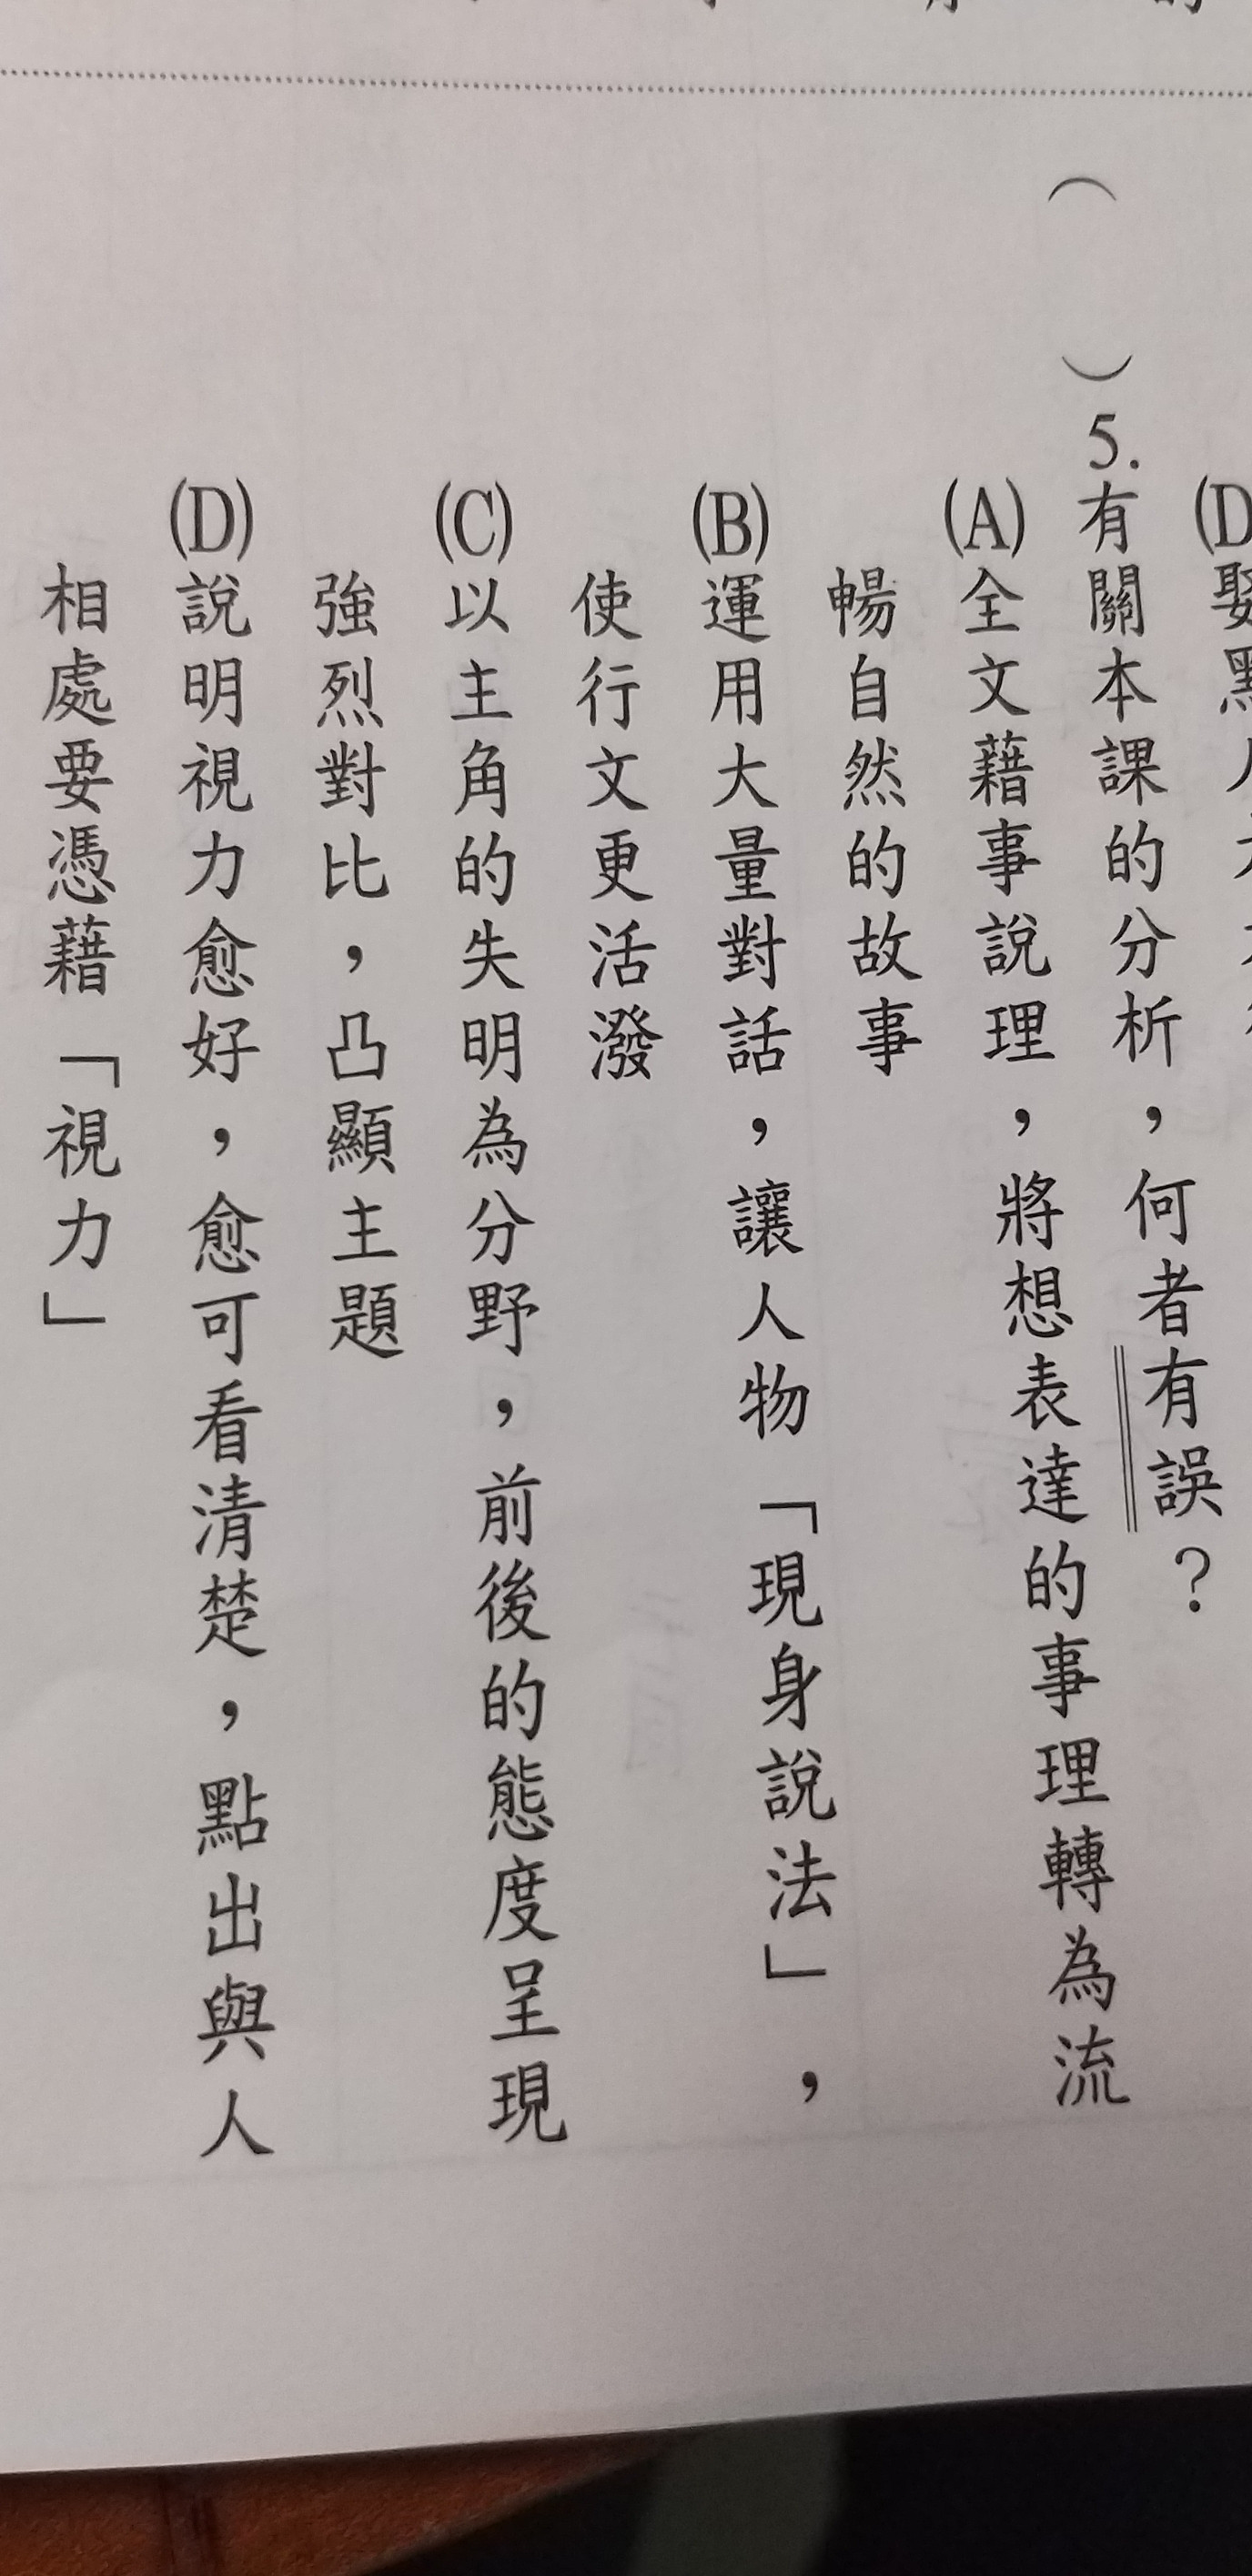 （　）5.有關本課的分析，何者有誤？
(A)全文藉事說理，將想表達的事理轉為流
暢自然的故事
(B)運用大量對話，讓人物「現身說法」，
使行文更活潑
(C)以主角的失明為分野，前後的態度呈現
強烈對比，凸顯主題
(D)說明視力愈好，愈可看清楚，點出與人
相處要憑藉「視力」